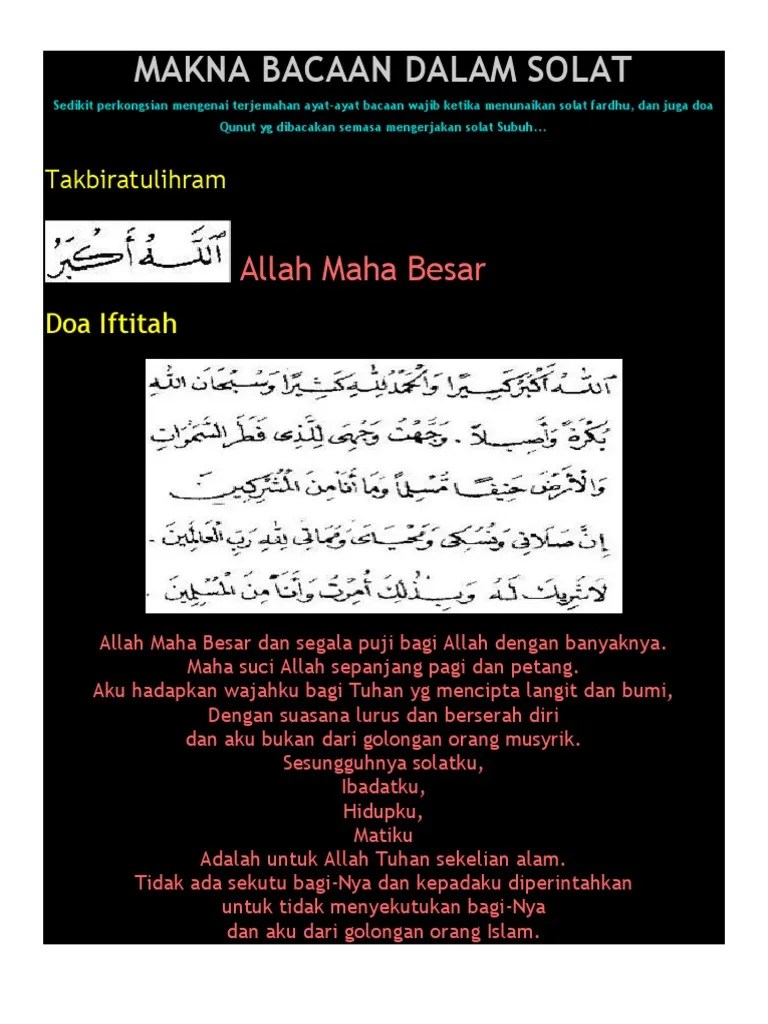 MAKNA BACAAN DALAM SOLAT
Sedikit perkongsian mengenai terjemahan ayat-ayat bacaan wajib ketika menunaikan solat fardhu, dan juga doa
Qunut yg dibacakan semasa mengerjakan solat Subuh...
Takbiratulihram
اَللّٰهُ أَكْبَرُ
Allah Maha Besar
Doa Iftitah
اَللّٰهُ أَكْبَرُ كَبِيْرًا وَالْحَمْدُ لِلّٰهِ كَثِيْرًا وَسُبْحَانَ اللّٰهِ
بُكْرَةً وَأَصِيْلاً . وَجَّهْتُ وَجْهِىَ لِلَّذِى فَطَرَ السَّمٰوَاتِ
وَالْأَرْضَ حَنِيْفًا مُسْلِمًا وَمَا أَنَا مِنَ الْمُشْرِكِيْنَ
إِنَّ صَلَاتِى وَنُسُكِى وَمَحْيَاىَ وَمَمَاتِى لِلّٰهِ رَبِّ الْعَالَمِيْنَ .
لَا شَرِيْكَ لَهُ وَبِذٰلِكَ أُمِرْتُ وَأَنَا مِنَ الْمُسْلِمِيْنَ .
Allah Maha Besar dan segala puji bagi Allah dengan banyaknya.
Maha suci Allah sepanjang pagi dan petang.
Aku hadapkan wajahku bagi Tuhan yg mencipta langit dan bumi,
Dengan suasana lurus dan berserah diri
dan aku bukan dari golongan orang musyrik.
Sesungguhnya solatku,
Ibadatku,
Hidupku,
Matiku
Adalah untuk Allah Tuhan sekelian alam.
Tidak ada sekutu bagi-Nya dan kepadaku diperintahkan
untuk tidak menyekutukan bagi-Nya
dan aku dari golongan orang Islam.